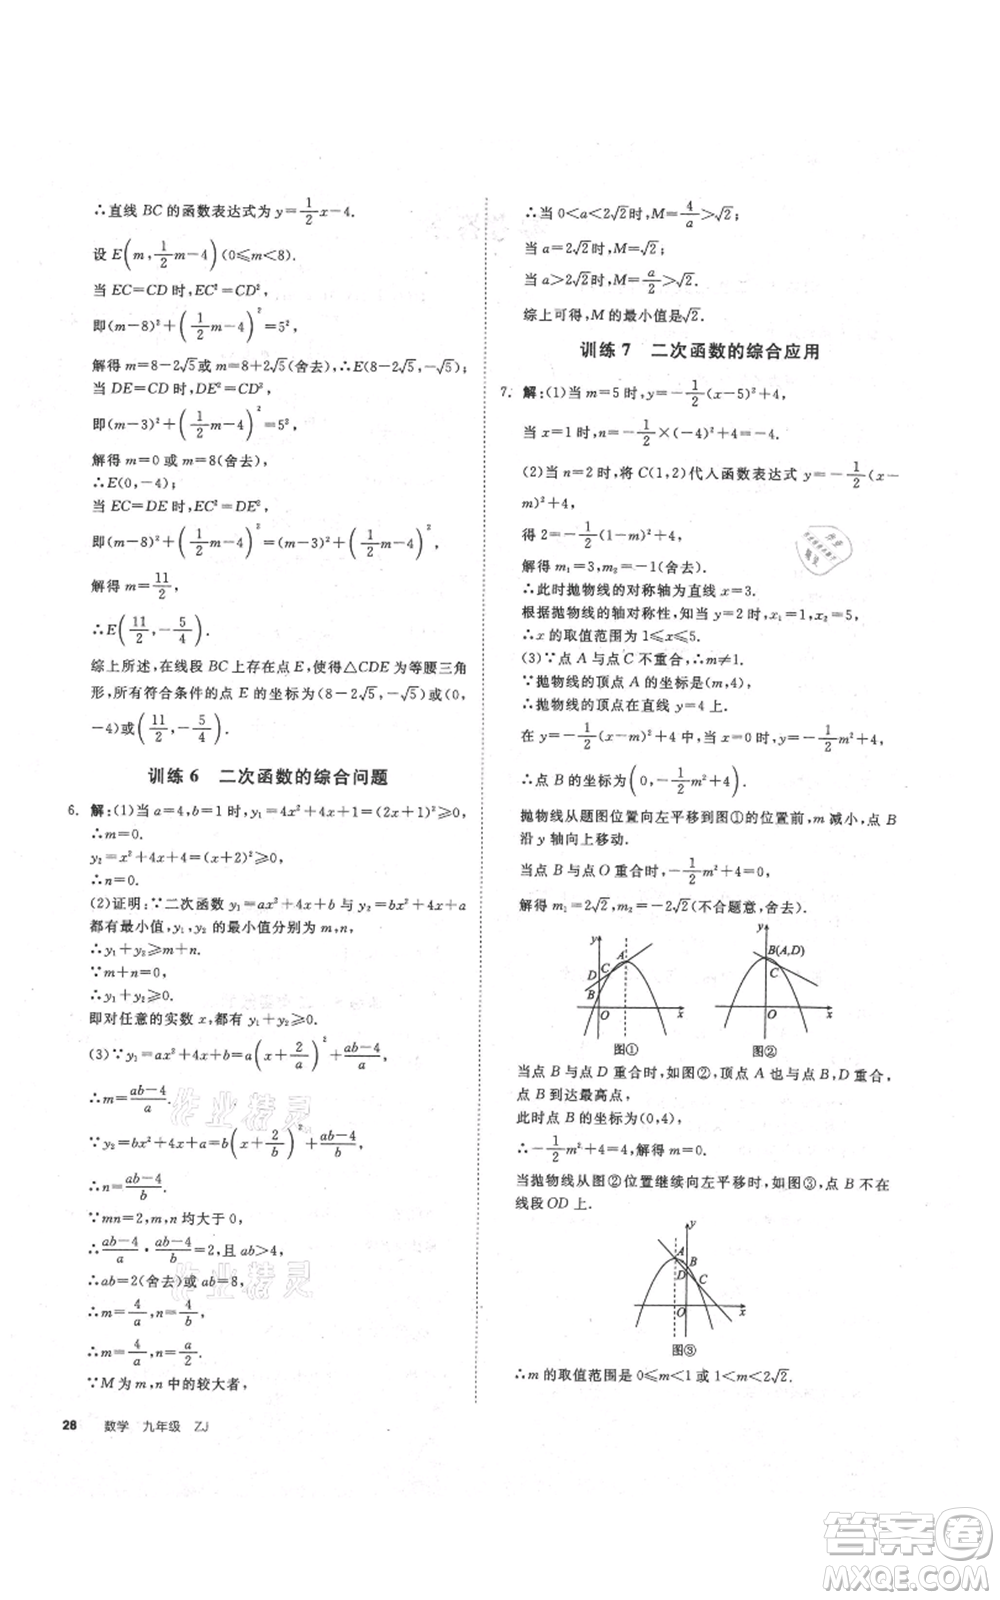 ∴直线 BC 的函数表达式为 y=1/2x-4.
设 E(m,1/2m-4)(0≤m≤8).
当 EC=CD 时,EC²=CD²,
即(m-8)²+(1/2m-4)²=5²,
解得 m=8-2√5或 m=8+2√5(舍去).∴E(8-2√5,-√5);
当 DE=CD 时,DE²=CD²,
即(m-3)²+(1/2m-4)²=5²,
解得 m=0 或 m=8(舍去).
∴E(0,-4);
当 EC=DE 时,EC²=DE²,
即(m-8)²+(1/2m-4)²=(m-3)²+(1/2m-4)²,
解得 m=11/2.
∴E(11/2,-5/4).
综上所述,在线段 BC 上存在点 E,使得△CDE 为等腰三角
形,所有符合条件的点 E 的坐标为(8-2√5,-√5)或(0,
-4)或(11/2,-5/4).
训练 6 二次函数的综合问题
6. 解:(1)当 a=4,b=1 时,y₁=4x²+4x+1=(2x+1)²≥0,
∴m=0.
y₂=x²+4x+4=(x+2)²≥0,
∴n=0.
(2)证明:∵二次函数 y₁=ax²+4x+b 与 y₂=bx²+4x+a
都有最小值,y₁,y₂ 的最小值分别为 m,n,
∴y₁+y₂≥m+n.
∵m+n=0,
∴y₁+y₂≥0.
即对任意的实数 x,都有 y₁+y₂≥0.
(3)∵y₁=ax²+4x+b=a(x+2/a)²+(ab-4)/a,
∴m=(ab-4)/a.
∵y₂=bx²+4x+a=b(x+2/b)²+(ab-4)/b,
∴n=(ab-4)/b.
∵mn=2,m,n 均大于 0,
∴(ab-4)/a·(ab-4)/b=2,且 ab>4,
∴ab=2(舍去)或 ab=8,
∴m=4/a,n=4/b,
∴m=4/a,n=a/2.
∵M 为 m,n 中的较大者,
28 数学 九年级 ZJ
∴当 0<a<2√2时,M=4/a>√2;
当 a=2√2时,M=√2;
当 a>2√2时,M=a/2>√2.
综上可得,M 的最小值是√2.
训练 7 二次函数的综合应用
7. 解:(1)当 m=5 时,y=-1/2(x-5)²+4,
当 x=1 时,n=-1/2×(-4)²+4=-4.
(2)当 n=2 时,将 C(1,2)代入函数表达式 y=-1/2(x-
m)²+4,
得 2=-1/2(1-m)²+4,
解得 m₁=3,m₂=-1(舍去).
∴此时抛物线的对称轴为直线 x=3.
根据抛物线的轴对称性,知当 y=2 时,x₁=1,x₂=5,
∴x 的取值范围为 1≤x≤5.
(3)∵点 A 与点 C 不重合,∴m≠1.
∵抛物线的顶点 A 的坐标是(m,4),
∴抛物线的顶点在直线 y=4 上.
在 y=-1/2(x-m)²+4 中,令 x=0,得 y=-1/2m²+4,
∴点 B 的坐标为(0,-1/2m²+4).
抛物线从题图位置向左平移到图①的位置前,m 减小,点 B
沿 y 轴向上移动.
当点 B 与点 O 重合时,-1/2m²+4=0,
解得 m₁=2√2,m₂=-2√2(不合题意,舍去).
y
D
C
A
B
O
x
图①
y
B(A,D)
C
O
x
图②
当点 B 与点 D 重合时,如图②,顶点 A 也与点 B,D 重合,
点 B 到达最高点.
此时点 B 的坐标为(0,4),
∴-1/2m²+4=4,解得 m=0.
当抛物线从图②位置继续向左平移时,如图③,点 B 不在
线段 OD 上.
y
A
B
D
C
O
x
图③
∴m 的取值范围是 0≤m<1 或 1<m<2√2.
作业精灵
作业精灵
答案卷